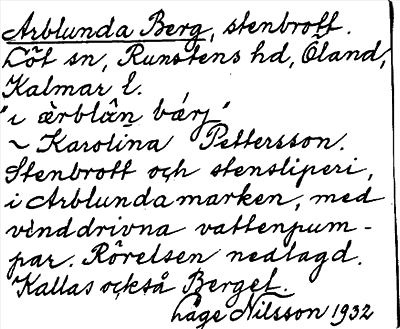 Arblunda Berg, stenbrott.
Löt sn, Runstens hd, Öland,
Kalmar l.
"ɩ ärblân bárj"
~ Karolina Pettersson.
Stenbrott och stensliperi,
i Arblundamarken, med
vinddrivna vattenpum-
par. Rörelsen nedlagd.
Kallas också Berget.
Låge Nilsson 1932